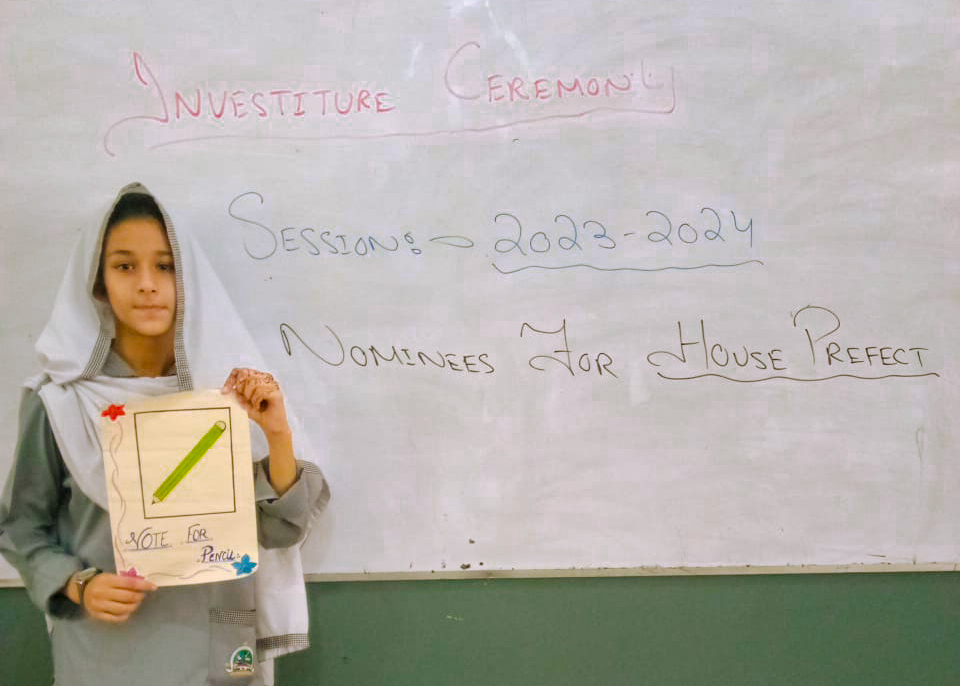 INVESTITURE CEREMONY
SESSION:- 2023-2024
NOMINEES FOR HOUSE PREFECT
VOTE FOR
PENCIL.